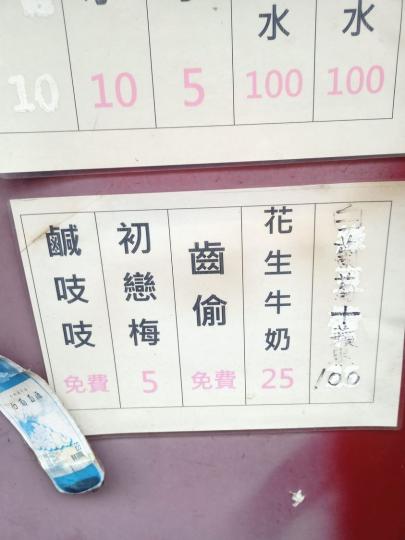 水
水
10
10
5
100
100
鹹吱吱
免費
初戀梅
5
齒偷
免費
花生牛奶
25
100